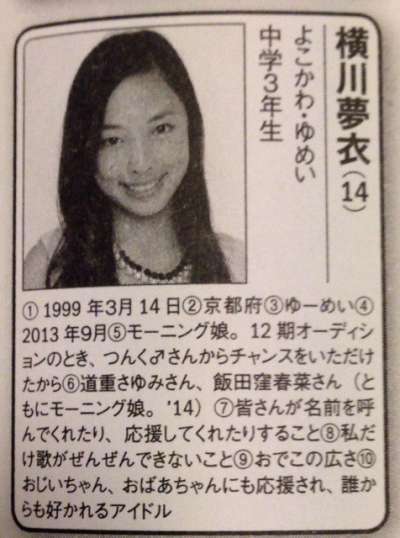 横川夢衣(14)
よこかわ・ゆめい
中学3年生
①1999年3月14日②京都府③ゆーめい④
2013年9月⑤モーニング娘。12期オーディシ
ョンのとき、つんく♂さんからチャンスをいただけ
たから⑥道重さゆみさん、飯田窪春菜さん(と
もにモーニング娘。'14)⑦皆さんが名前を呼
んでくれたり、応援してくれたりすること⑧私だ
け歌がぜんぜんできないこと⑨おでこの広さ⑩
おじいちゃん、おばあちゃんにも応援され、誰か
らも好かれるアイドル